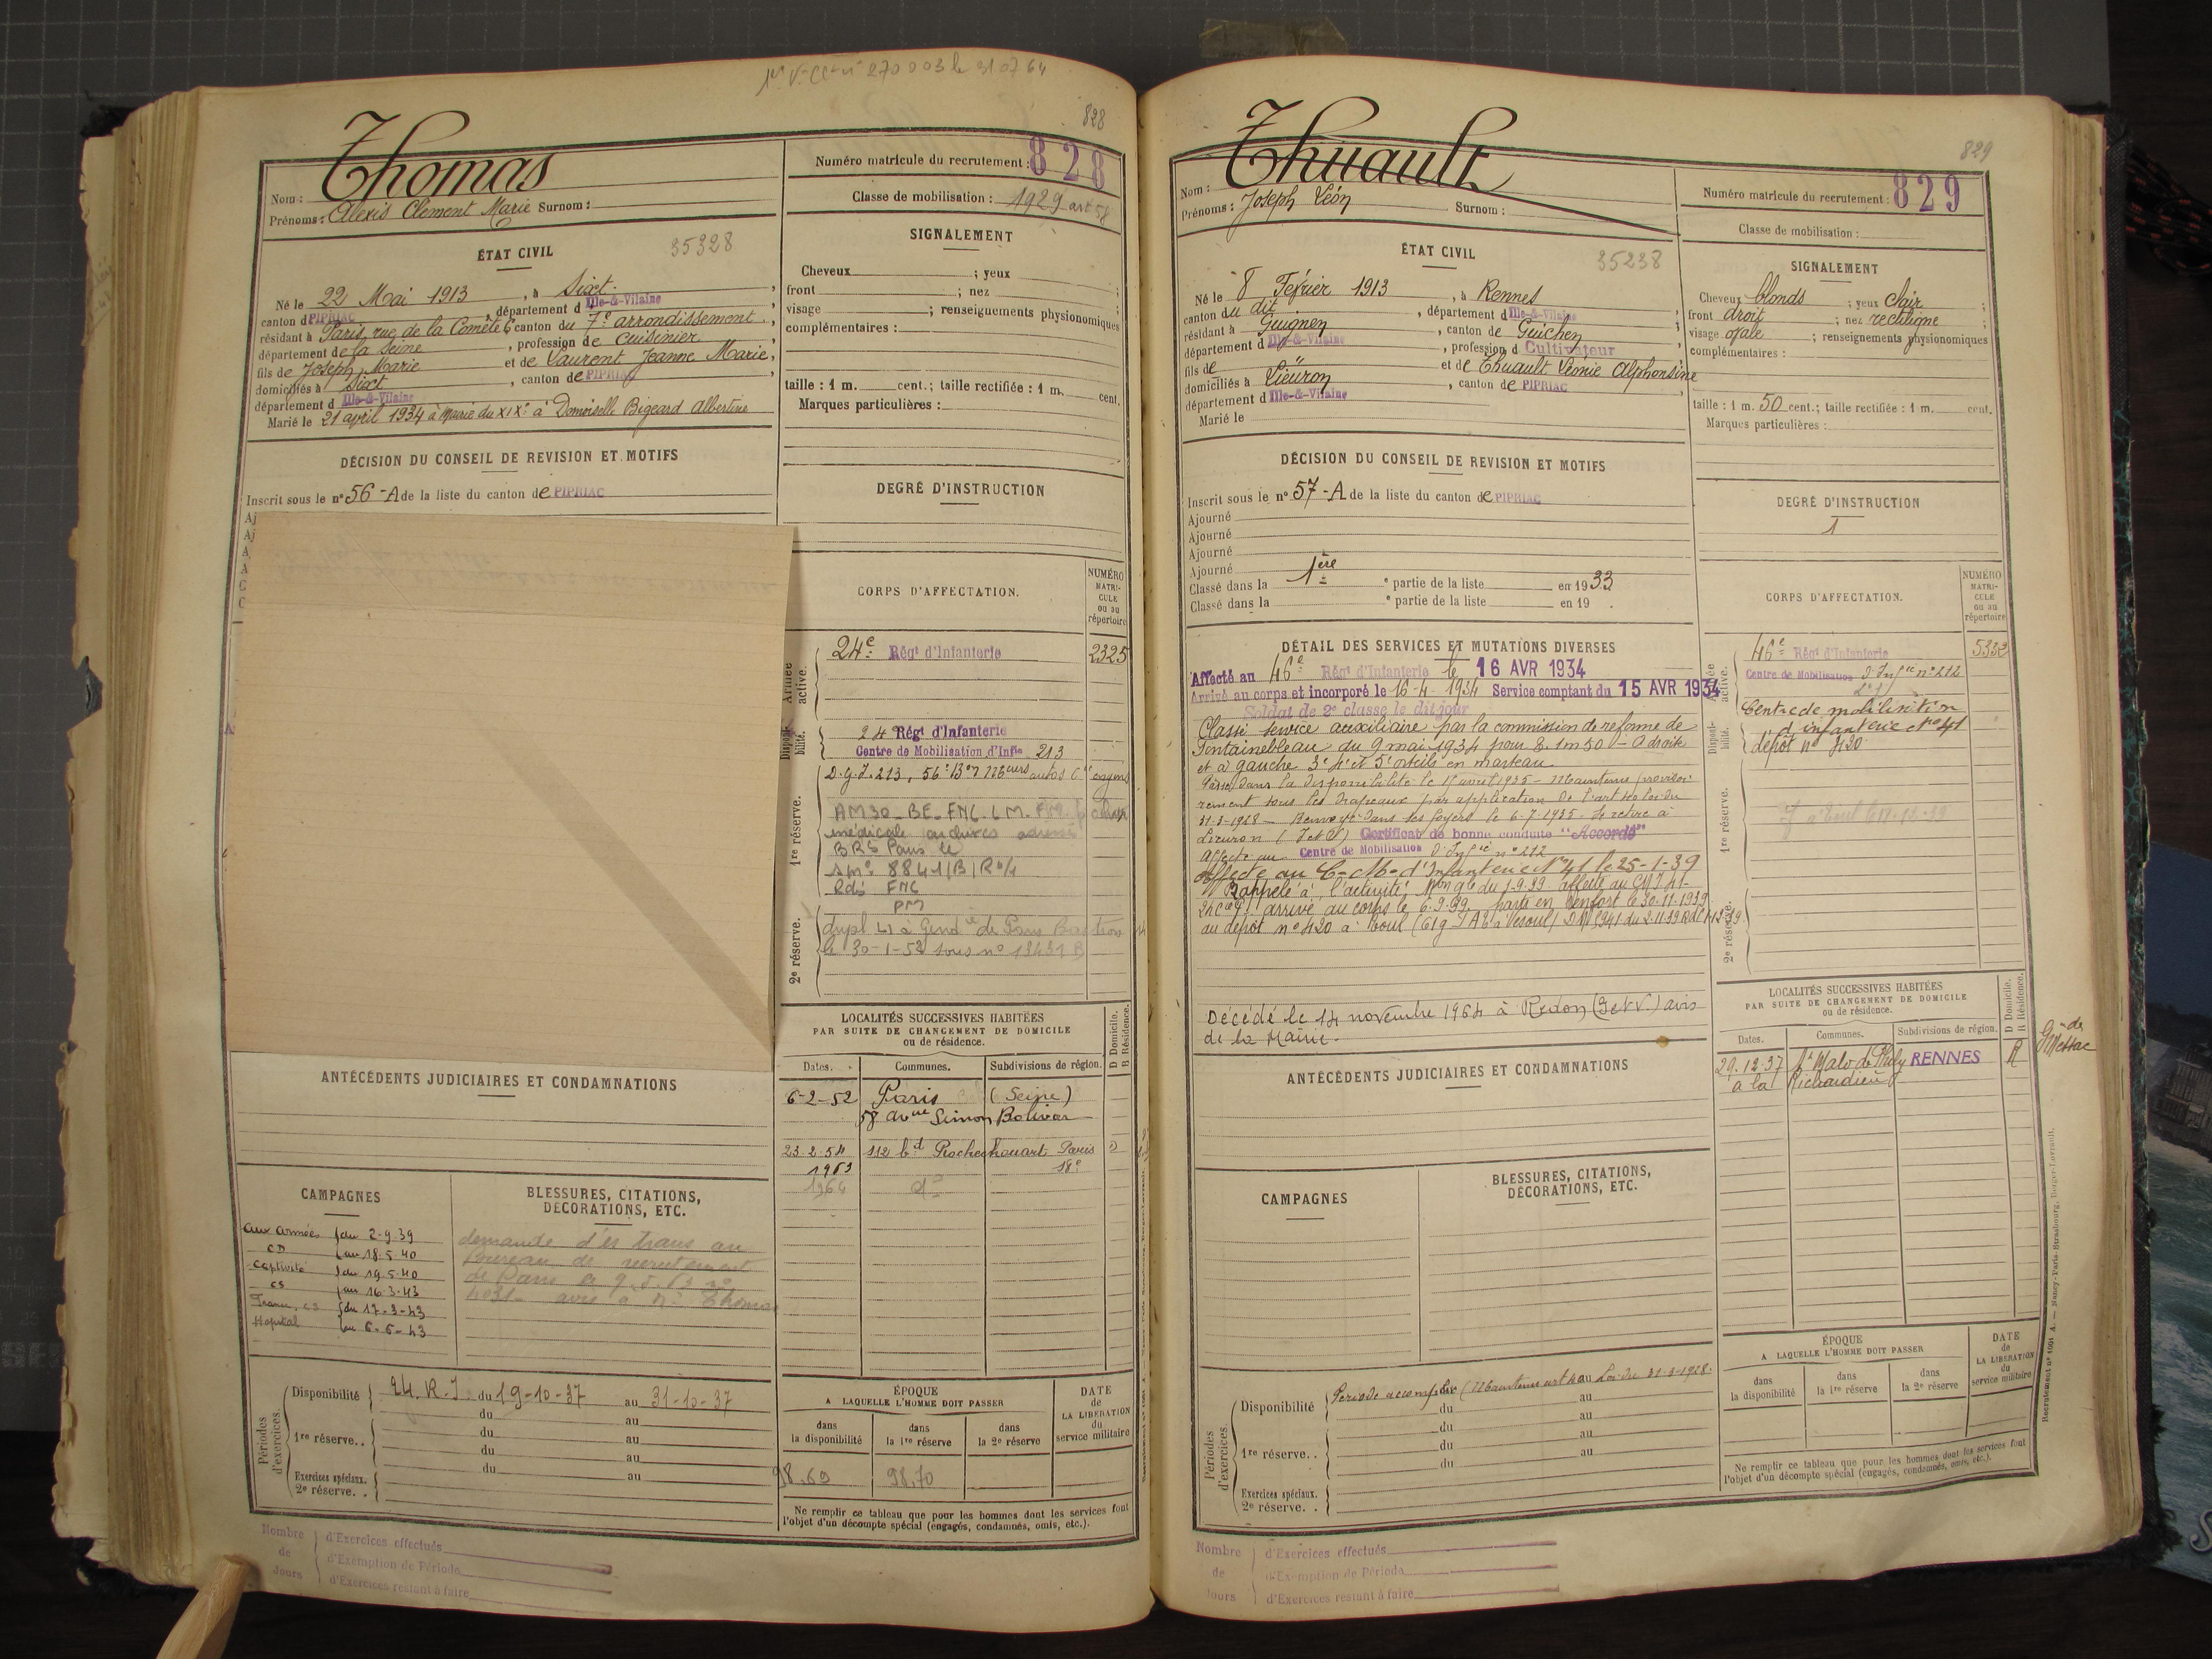 828
Nom : Thomas
Prénoms : Alexis Clement Marie Surnom :
Numéro matricule du recrutement : 828
Classe de mobilisation : 1929 art 58
ÉTAT CIVIL
35328
Né le 22 Mai 1913, à Sixt.
canton d PIPRIAC, département d Ille-&-Vilaine
résidant à Paris, rue de la Comète 6 canton du 7e arrondissement
département de la Seine, profession de cuisinier
fils de Joseph Marie et de Laurent Jeanne Marie,
domiciliés à Sixt, canton de PIPRIAC
département d Ille-&-Vilaine
Marié le 21 avril 1934 à Mairie du XIXe à Demoiselle Bigeard Albertine
SIGNALEMENT
Cheveux ; yeux
front ; nez ;
visage ; renseignements physionomiques
complémentaires :
taille : 1 m. cent.; taille rectifiée : 1 m. cent.
Marques particulières :
DÉCISION DU CONSEIL DE REVISION ET MOTIFS
Inscrit sous le n° 56 - A de la liste du canton de PIPRIAC
DEGRÉ D'INSTRUCTION
CORPS D'AFFECTATION.
NUMÉRO MATRICULE ou au répertoire
Armée active.
24e Régt d'Infanterie 2325
Disponibilité.
24 Régt d'Infanterie
Centre de Mobilisation d'Infie 213
1re réserve.
médicale archives
BRS Paris le
Rdé FNC
PM
2e réserve.
le 30-1-52 sous n° 13431 B
LOCALITÉS SUCCESSIVES HABITÉES
PAR SUITE DE CHANGEMENT DE DOMICILE
ou de résidence.
D Domicile.
R Résidence.
Dates. Communes. Subdivisions de région.
6-2-52 Paris (Seine)
58 avnue Simon Bolivar
23.2.54 112 bd Rochechouart Paris D
1963 18e
1964 do
ANTÉCÉDENTS JUDICIAIRES ET CONDAMNATIONS
CAMPAGNES
aux armées du 2-9-39
CD au 18-5-40
captivité du 19-5-40
CS au 16-3-43
du 17-3-43
Hopital au 6-6-43
BLESSURES, CITATIONS,
DÉCORATIONS, ETC.
bureau de recrutement
Périodes d'exercices.
Disponibilité 24. R.I. du 19-10-37 au 31-10-37
du au
1re réserve. . du au
du au
Exercices spéciaux. du au
2e réserve. .
ÉPOQUE
A LAQUELLE L'HOMME DOIT PASSER
dans la disponibilité
dans la 1re réserve
dans la 2e réserve
DATE de LA LIBERATION du service militaire
98.69 98.70
Ne remplir ce tableau que pour les hommes dont les services font
l'objet d'un décompte spécial (engagés, condamnés, omis, etc.).
Nombre de Jours
d'Exercices effectués
d'Exemption de Période
d'Exercices restant à faire
829
Nom : Thuault
Prénoms : Joseph Léon Surnom :
Numéro matricule du recrutement : 829
Classe de mobilisation :
ÉTAT CIVIL
35238
Né le 8 Février 1913, à Rennes
canton du dit, département d Ille-&-Vilaine
résidant à Guignen, canton de Guichen
département d Ille-&-Vilaine, profession d Cultivateur
fils de " et de Thuault Léonie Alphonsine
domiciliés à Lieuron, canton de PIPRIAC
département d Ille-&-Vilaine
Marié le
SIGNALEMENT
Cheveux blonds ; yeux clair ;
front droit ; nez rectiligne ;
visage ovale ; renseignements physionomiques
complémentaires :
taille : 1 m. 50 cent.; taille rectifiée : 1 m. cent.
Marques particulières :
DÉCISION DU CONSEIL DE REVISION ET MOTIFS
Inscrit sous le n° 57 - A de la liste du canton de PIPRIAC
Ajourné
Ajourné
Ajourné
Ajourné
Classé dans la 1ère e partie de la liste en 1933
Classé dans la e partie de la liste en 19 .
DEGRÉ D'INSTRUCTION
1
DÉTAIL DES SERVICES ET MUTATIONS DIVERSES
Affecté au 46e Régt d'Infanterie le 16 AVR 1934
Arrivé au corps et incorporé le 16-4-1934 Service comptant du 15 AVR 1934
Soldat de 2e classe le dit jour
Classé service auxiliaire par la commission de réforme de
Fontainebleau du 9 mai 1934 pour 8. 1m50 - à droite
et à gauche 3e 4e et 5e orteils en marteau.
Passé dans la disponibilité le 15 avril 1935 - Maintenu provisoi-
rement sous les drapeaux par application de l'art 40 loi du
31-3-1928 - Renvoyé dans ses foyers le 6-7-1935. Se retire à
Lieuron (I et V) Certificat de bonne conduite "Accordé"
Affecté au Centre de Mobilisation d'Infie n° 212
Affecté au C-M-d'Infanterie N°41 le 25-1-39
Rappelé à l'activité Mon gle du 1-9-39 affecté au CMI 41-
arrivé au corps le 6.9.39. parti en renfort le 30-11-1939
au dépôt n° 420 à Toul
Décédé le 14 novembre 1964 à Redon (I et V.) avis
de la Mairie.
CORPS D'AFFECTATION.
NUMÉRO MATRICULE ou au répertoire
Armée active.
46e Régt d'Infanterie 5332
Centre de Mobilisation d'Infie n° 212
Disponibilité.
Centre de mobilisation
d'infanterie N° 41
dépôt n° 420
1re réserve.
2e réserve.
LOCALITÉS SUCCESSIVES HABITÉES
PAR SUITE DE CHANGEMENT DE DOMICILE
ou de résidence.
D Domicile.
R Résidence.
Dates. Communes. Subdivisions de région.
29.12.37 St Malo de Phily RENNES R Gie de Messac
à la Richardière
ANTÉCÉDENTS JUDICIAIRES ET CONDAMNATIONS
CAMPAGNES
BLESSURES, CITATIONS,
DÉCORATIONS, ETC.
Périodes d'exercices.
Disponibilité Période accomplie (Maintenu art 40 Loi du 31-3-1928.
du au
1re réserve. . du au
du au
Exercices spéciaux.
2e réserve. .
ÉPOQUE
A LAQUELLE L'HOMME DOIT PASSER
dans la disponibilité
dans la 1re réserve
dans la 2e réserve
DATE de LA LIBERATION du service militaire
Ne remplir ce tableau que pour les hommes dont les services font
l'objet d'un décompte spécial (engagés, condamnés, omis, etc.).
Nombre de Jours
d'Exercices effectués
d'Exemption de Période
d'Exercices restant à faire